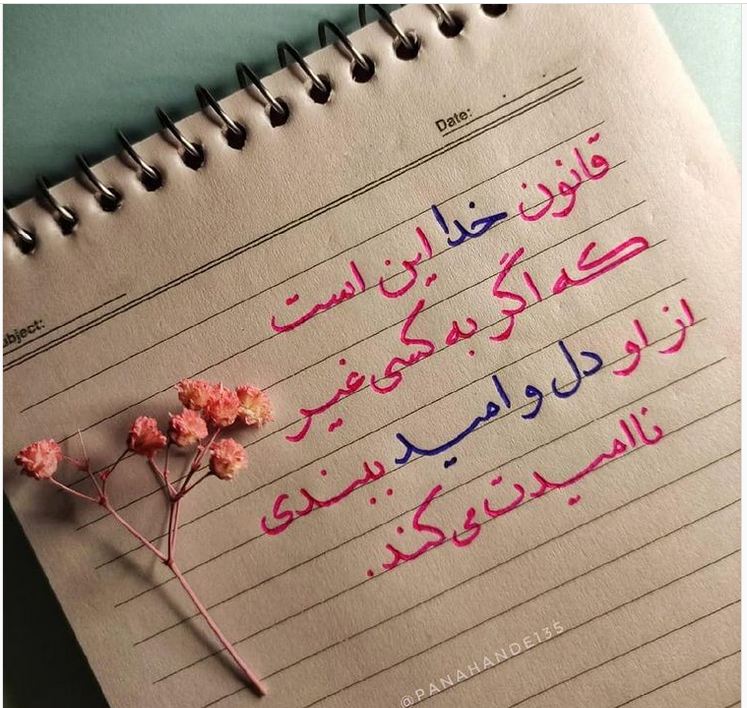 Date:
قانون خدا این است
که اگر به کسی غیر
از او دل و امید ببندی
ناامیدت می‌کند.
ubject:
@PANAHANDE135